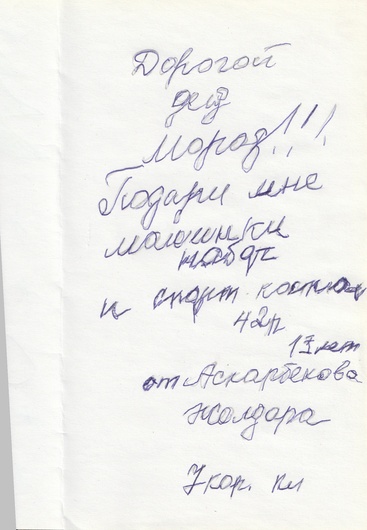 Дорогой
дед
Мороз!!!
Подари мне
машинки
набор
и спорт. костюм
42р
13 лет
от Аскарбекова
Жолдара
7 кор. кл